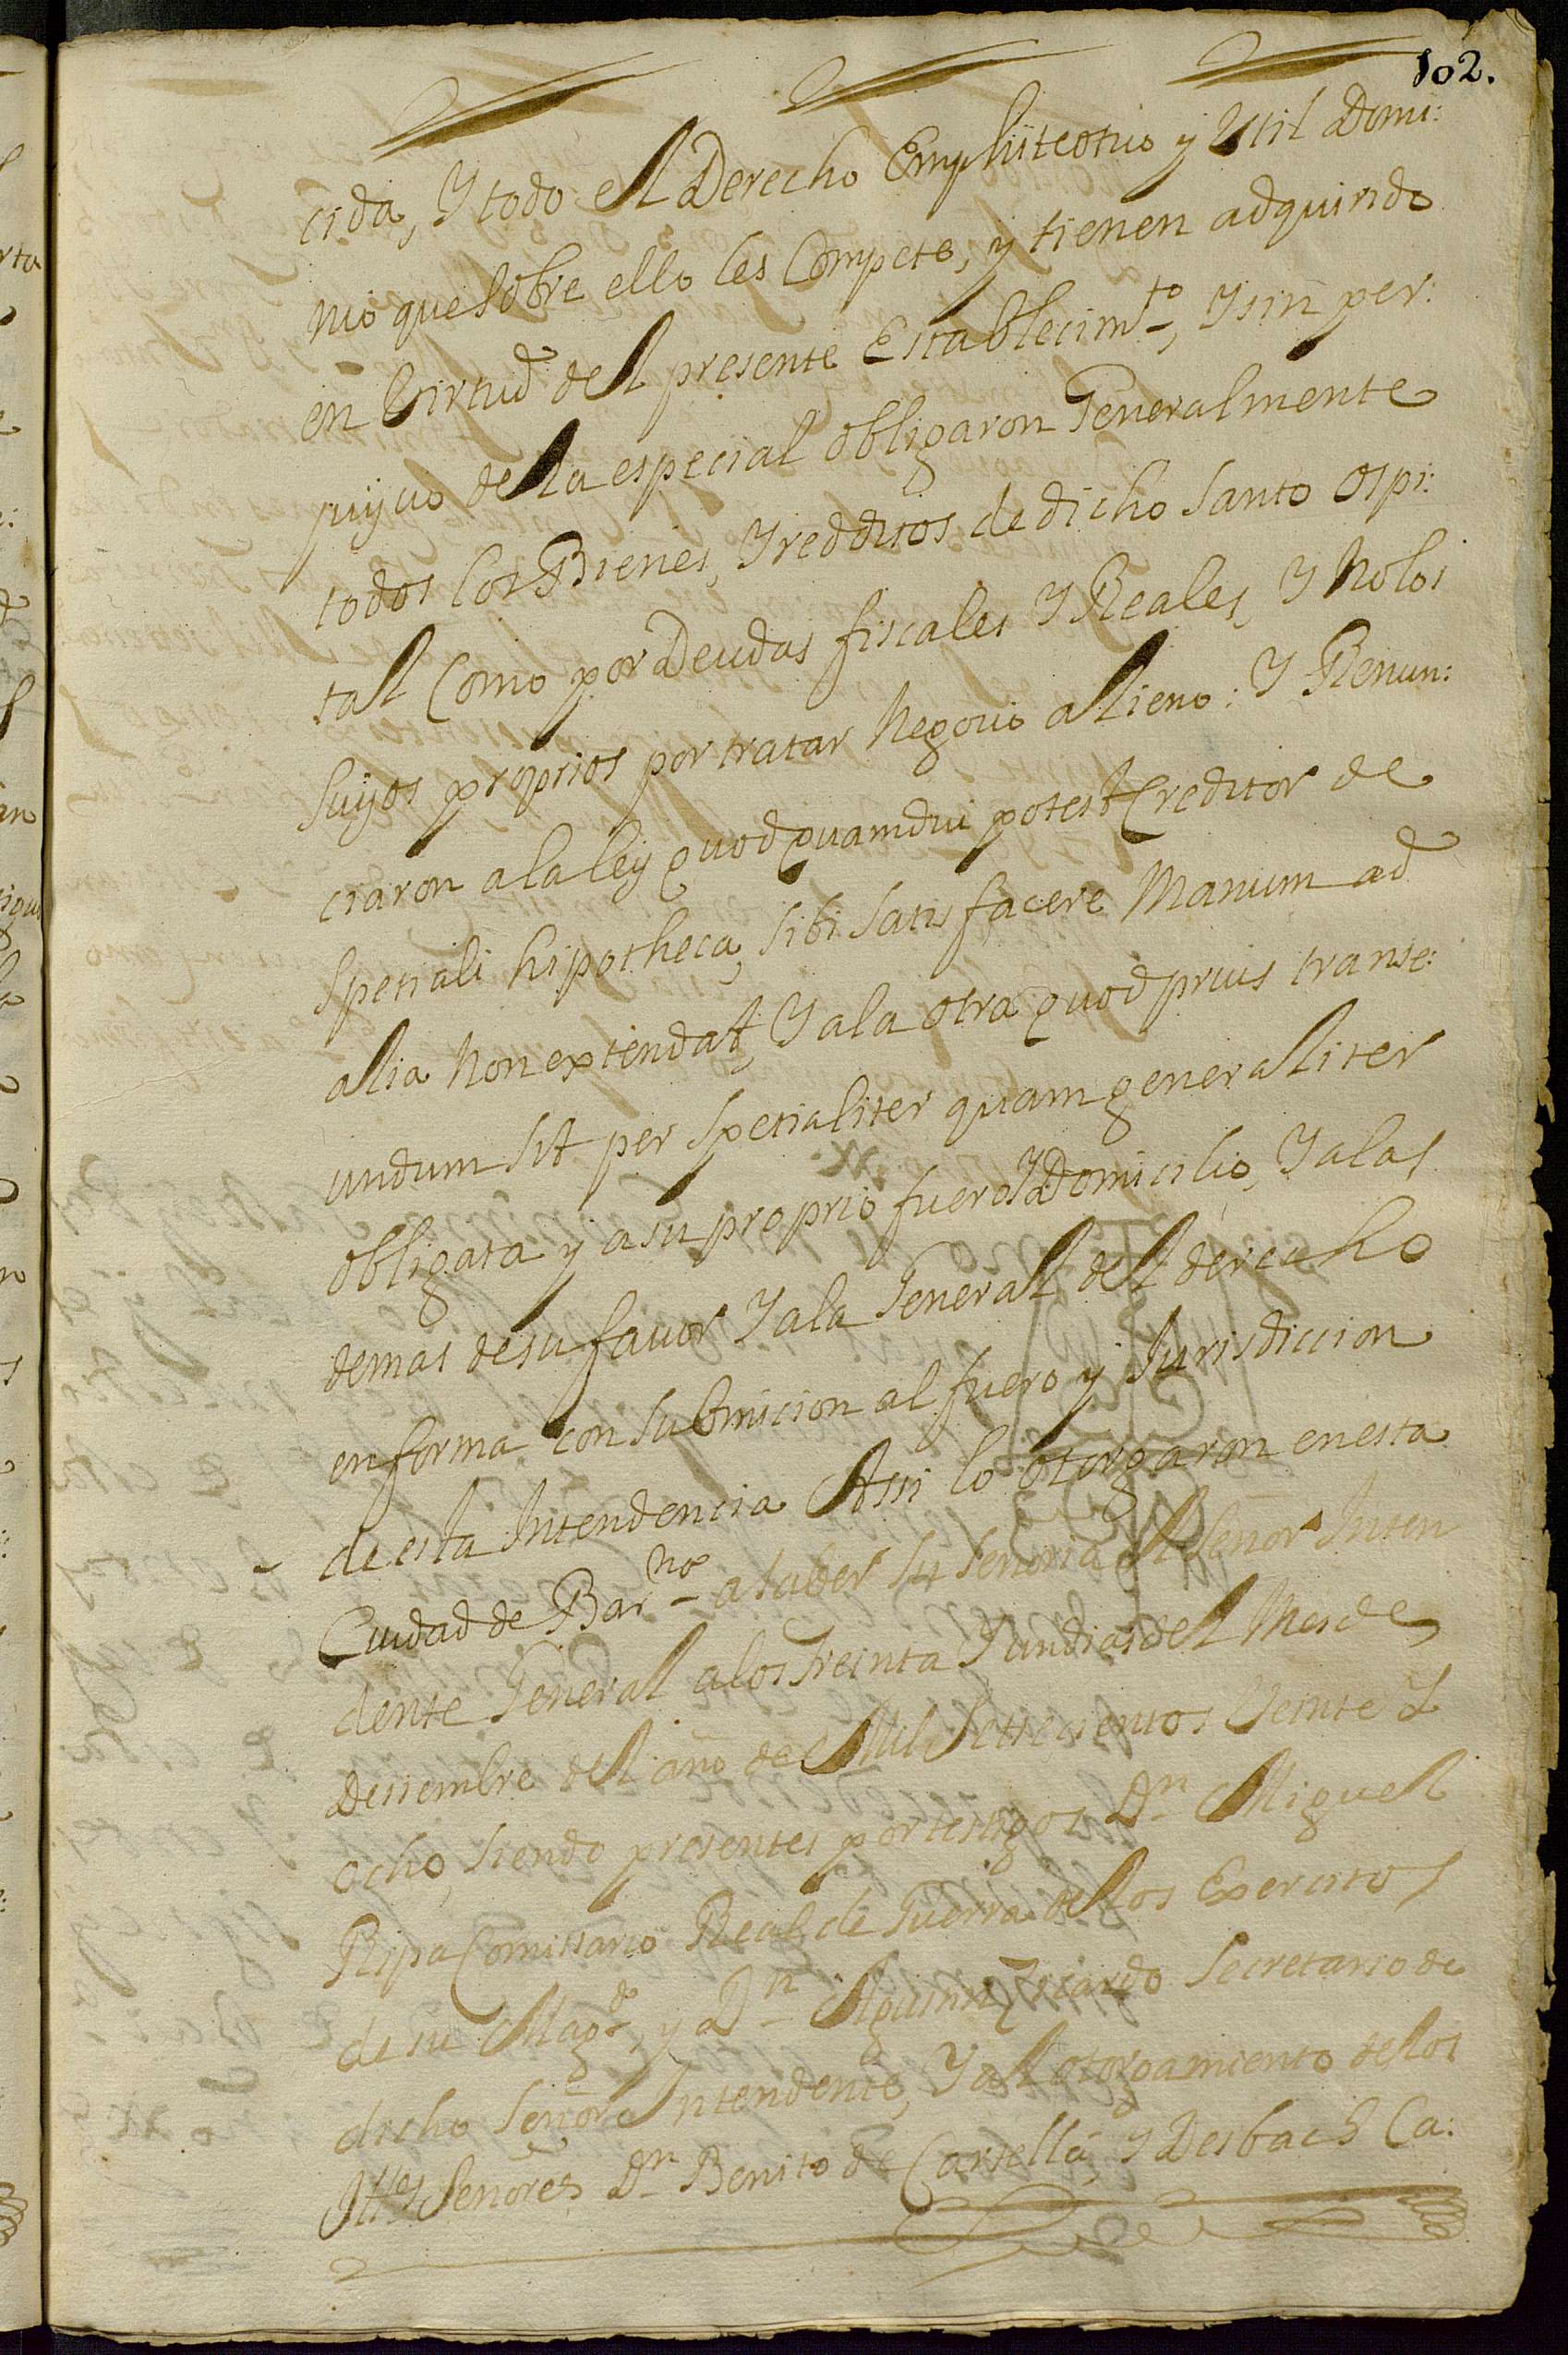 102.
cida, Y todo el Derecho Emphiteotico y Util Domi:
nio que Sobre ello les Compete, y tienen adquirido
en Virtud del presente Establecim.to, Y sin per:
juyicio de la especial obligaron Generalmente
todos los Bienes, Y redditos de dicho Santo Ospi:
tal Como por Deudas fiscales Y Reales, Y No los
Suyos proprios por tratar Negocio alieno: Y Renun:
ciaron a la ley quod quamdiu potest Creditor de
Spetiali hipotheca, Sibi Satisfacere Manum ad
alia Non extendat, Y a la otra quod prius transe:
undum Sit per Spetialiter quam generalliter
obligata y a su proprio fuero Y Domicilio, Y a las
demas de su favor Y a la General del derecho
en forma con Submicion al fuero y Jurisdiccion
de esta Intendencia Assi lo otorgaron en esta
Ciudad de Bar.na a Saber Su Señoria el Señor Inten
dente General a los Treinta Y un dias del Mes de
Desiembre del año de Mil Settecientos Veinte Y
ocho, Siendo presentes por testigos D.n Miguel
Ripa Comissario Real de Guerra de los Exercitos
de su Mag.d, y D.n Agustin Ricardo Secretario de
dicho Señor Intendente, Y al otorgamiento de los
Ill.es Señores D.n Benito de Cartellá, Y Desbach Ca: